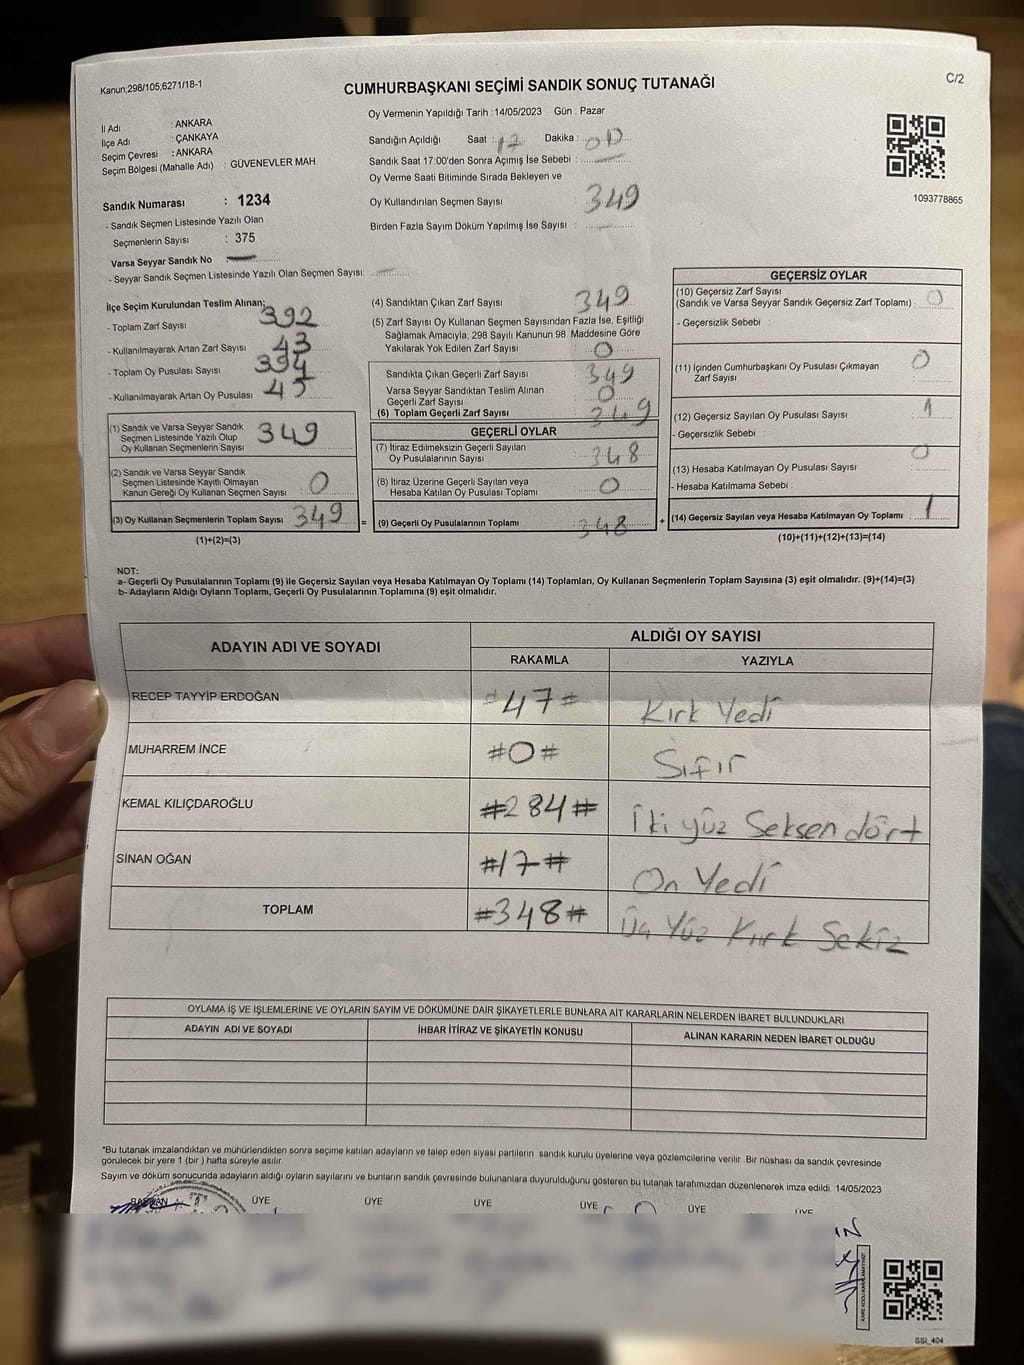 Kanun;298/105;6271/18-1
CUMHURBAŞKANI SEÇİMİ SANDIK SONUÇ TUTANAĞI
C/2
Oy Vermenin Yapıldığı Tarih :14/05/2023 Gün : Pazar
İl Adı : ANKARA
İlçe Adı : ÇANKAYA
Seçim Çevresi : ANKARA
Seçim Bölgesi (Mahalle Adı) : GÜVENEVLER MAH.
Sandık Numarası : 1234
- Sandık Seçmen Listesinde Yazılı Olan
Seçmenlerin Sayısı : 375
Varsa Seyyar Sandık No :
- Seyyar Sandık Seçmen Listesinde Yazılı Olan Seçmen Sayısı:
Sandığın Açıldığı Saat : 17 Dakika : 00
Sandık Saat 17:00'den Sonra Açımış İse Sebebi :
Oy Verme Saati Bitiminde Sırada Bekleyen ve
Oy Kullandırılan Seçmen Sayısı : 349
Birden Fazla Sayım Döküm Yapılmış İse Sayısı :
1093778865
İlçe Seçim Kurulundan Teslim Alınan;
- Toplam Zarf Sayısı 392
- Kullanılmayarak Artan Zarf Sayısı 43
- Toplam Oy Pusulası Sayısı 394
- Kullanılmayarak Artan Oy Pusulası 45
(1) Sandık ve Varsa Seyyar Sandık
Seçmen Listesinde Yazılı Olup
Oy Kullanan Seçmenlerin Sayısı 349
(2) Sandık ve Varsa Seyyar Sandık
Seçmen Listesinde Kayıtlı Olmayan
Kanun Gereği Oy Kullanan Seçmen Sayısı 0
(3) Oy Kullanan Seçmenlerin Toplam Sayısı 349 =
(1)+(2)=(3)
(4) Sandıktan Çıkan Zarf Sayısı 349
(5) Zarf Sayısı Oy Kullanan Seçmen Sayısından Fazla İse, Eşitliği
Sağlamak Amacıyla, 298 Sayılı Kanunun 98. Maddesine Göre
Yakılarak Yok Edilen Zarf Sayısı 0
Sandıkta Çıkan Geçerli Zarf Sayısı : 349
Varsa Seyyar Sandıktan Teslim Alınan
Geçerli Zarf Sayısı : 0
(6) Toplam Geçerli Zarf Sayısı : 349
GEÇERLİ OYLAR
(7) İtiraz Edilmeksizin Geçerli Sayılan
Oy Pusulalarının Sayısı : 348
(8) İtiraz Üzerine Geçerli Sayılan veya
Hesaba Katılan Oy Pusulası Toplamı : 0
(9) Geçerli Oy Pusulalarının Toplamı : 348 +
GEÇERSİZ OYLAR
(10) Geçersiz Zarf Sayısı
(Sandık ve Varsa Seyyar Sandık Geçersiz Zarf Toplamı) : 0
- Geçersizlik Sebebi :
(11) İçinden Cumhurbaşkanı Oy Pusulası Çıkmayan
Zarf Sayısı : 0
(12) Geçersiz Sayılan Oy Pusulası Sayısı : 1
- Geçersizlik Sebebi :
(13) Hesaba Katılmayan Oy Pusulası Sayısı : 0
- Hesaba Katılmama Sebebi :
(14) Geçersiz Sayılan veya Hesaba Katılmayan Oy Toplamı : 1
(10)+(11)+(12)+(13)=(14)
NOT:
a- Geçerli Oy Pusulalarının Toplamı (9) ile Geçersiz Sayılan veya Hesaba Katılmayan Oy Toplamı (14) Toplamları, Oy Kullanan Seçmenlerin Toplam Sayısına (3) eşit olmalıdır. (9)+(14)=(3)
b- Adayların Aldığı Oyların Toplamı, Geçerli Oy Pusulalarının Toplamına (9) eşit olmalıdır.
ADAYIN ADI VE SOYADI ALDIĞI OY SAYISI
RAKAMLA YAZIYLA
RECEP TAYYİP ERDOĞAN #47# Kırk Yedi
MUHARREM İNCE #0# Sıfır
KEMAL KILIÇDAROĞLU #284# İki yüz Seksen dört
SİNAN OĞAN #17# On Yedi
TOPLAM #348# Üç Yüz Kırk Sekiz
OYLAMA İŞ VE İŞLEMLERİNE VE OYLARIN SAYIM VE DÖKÜMÜNE DAİR ŞİKAYETLERLE BUNLARA AİT KARARLARIN NELERDEN İBARET BULUNDUKLARI
ADAYIN ADI VE SOYADI İHBAR İTİRAZ VE ŞİKAYETİN KONUSU ALINAN KARARIN NEDEN İBARET OLDUĞU
*Bu tutanak imzalandıktan ve mühürlendikten sonra seçime katılan adayların ve talep eden siyasi partilerin sandık kurulu üyelerine veya gözlemcilerine verilir. Bir nüshası da sandık çevresinde
görülecek bir yere 1 (bir ) hafta süreyle asılır.
Sayım ve döküm sonucunda adayların aldığı oyların sayılarını ve bunların sandık çevresinde bulunanlara duyurulduğunu gösteren bu tutanak tarafımızdan düzenlenerek imza edildi. 14/05/2023
BAŞKAN ÜYE ÜYE ÜYE ÜYE ÜYE ÜYE
SSI_404